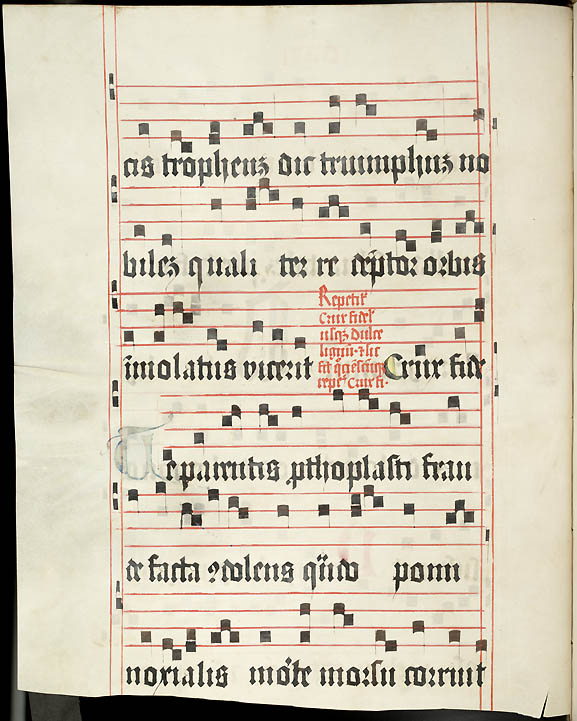 cis tropheuʒ dic triumphuʒ no
bileʒ quali ter re deptor orbis
īmolatus vicerit
Repetit᷑
Crux fidel
usqʒ dulce
lignū. ⁊ sic
Crux fide
De parentis ꝓthoplasti frau
de facta ꝯdolens qñdo pomi
noxialis morte morsu corruit